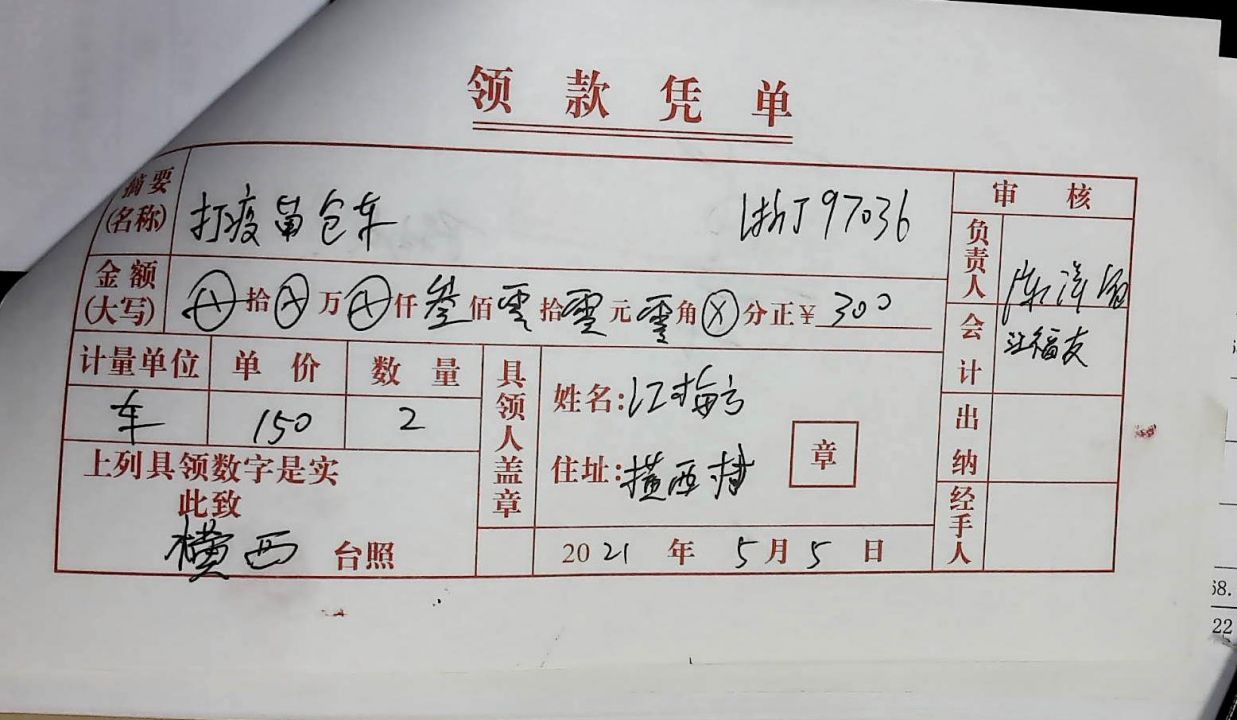 领款凭单
摘要(名称) 打疫苗包车 浙J97036
审核
负责人
金额(大写) ⊗拾⊗万⊗仟叁佰零拾零元零角⊗分正¥300
会计 汪福友
计量单位 单价 数量
车 150 2
具领人盖章
姓名:江梅方
住址:横西村
章
出纳
经手人
上列具领数字是实
此致
横西 台照
2021年5月5日
68.
22